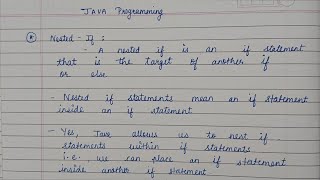 JAVA Programming
Nested - If :
- A nested if is an if statement
that is the target of another if
or else.
- Nested if statements mean an if statement
inside an if statement
- Yes, Java allows us to nest if
statements within if statements.
i.e., we can place an if statement
inside another if statement